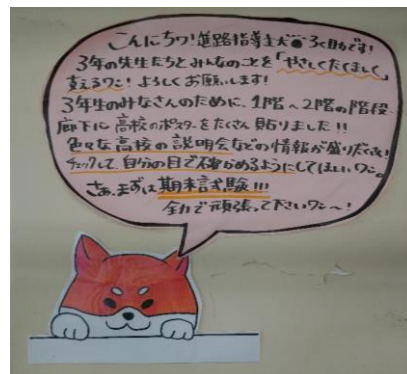 こんにちワ!進路指導主犬 ろく助です!
3年の先生たちとみんなのことを「やさしくたくましく」
支えるワン! よろしくお願いします!
3年生のみなさんのために、1階〜2階の階段、
廊下に高校のポスターをたくさん貼りました!!
色々な高校の説明会などの情報が盛りだくさん!
チェックして、自分の目で確かめるようにしてほしいワン。
さぁ、まずは期末試験!!!
全力で頑張って下さいワン〜!